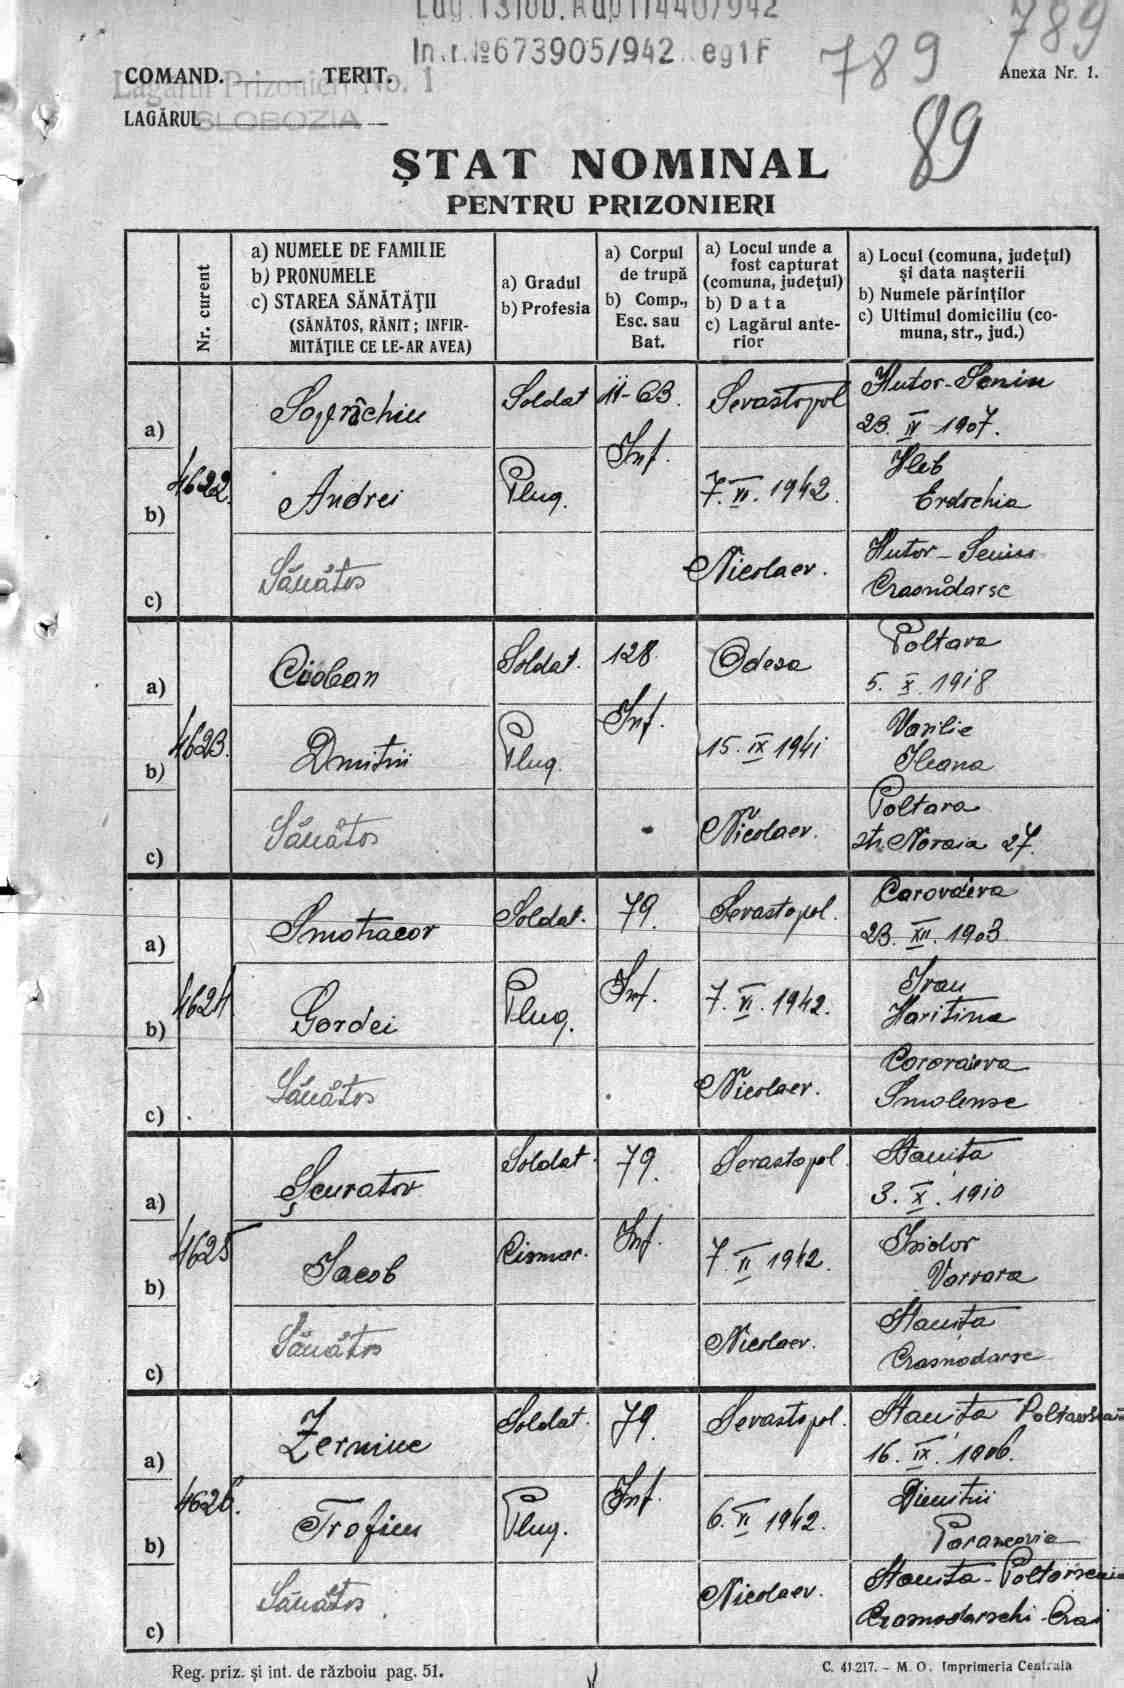 In.r.№673905/942 eg1F
789
789
COMAND. TERIT.
Lagărul Prizonieri No. 1
Anexa Nr. 1.
LAGĂRUL SLOBOZIA
89
ȘTAT NOMINAL
PENTRU PRIZONIERI
Nr. curent
a) NUMELE DE FAMILIE
b) PRONUMELE
c) STAREA SĂNĂTĂŢII
(SĂNĂTOS, RĂNIT; INFIR-
MITĂŢILE CE LE-AR AVEA)
a) Gradul
b) Profesia
a) Corpul
de trupă
b) Comp.,
Esc. sau
Bat.
a) Locul unde a
fost capturat
(comuna, județul)
b) Data
c) Lagărul ante-
rior
a) Locul (comuna, județul)
și data nașterii
b) Numele părinților
c) Ultimul domiciliu (co-
muna, str., jud.)
4622.
a) Soldat Sevastopol Hutor-Senin
23. IV 1907.
Inf.
b) Andrei Plug. 7. VI. 1942. Hleb
c) Sănătos Nicolaev. Hutor-Senin
Crasnodarsc
4623.
a) Cioban Soldat. 128. Odesa Poltava
5. X. 1918
Inf.
b) Dmitrii Plug. 15. IX 1941 Vasilie
Ileana
c) Sănătos Nicolaev. Poltava
str. Novaia 27.
4624
a) Soldat. 79. Sevastopol.
23. XII. 1903
Inf.
b) Gordei Plug. 7. VI. 1942. Ivan
Haritina
c) Sănătos Nicolaev.
Smolensc
4625
a) Șcuratov Soldat. 79. Sevastopol. Stanița
3. X. 1910
Inf.
b) Iacob Cismar. 7. VI 1942. Isidor
Varvara
c) Sănătos Nicolaev. Stanița
Crasnodarsc
4626.
a) Soldat. 79. Sevastopol. Stanița
16. IX. 1906.
Inf.
b) Trofim Plug. 6. VI 1942. Dimitrii
c) Sănătos. Nicolaev. Stanița-Poltavscaia
Crasnodarschi-Crai
Reg. priz. și int. de războiu pag. 51.
C. 41.217. – M. O. Imprimeria Centrala